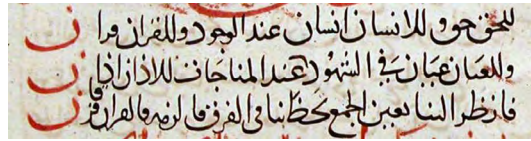 للحق حق وللانسان انسان عند الوجود وللقران قرا ن
وللعيان عيان في الشهود عند المناجات للاذان اذا ن
فانظر الينا بعين الجمع تحظ بنا في الفرق فالزمه فالقران قرا ن